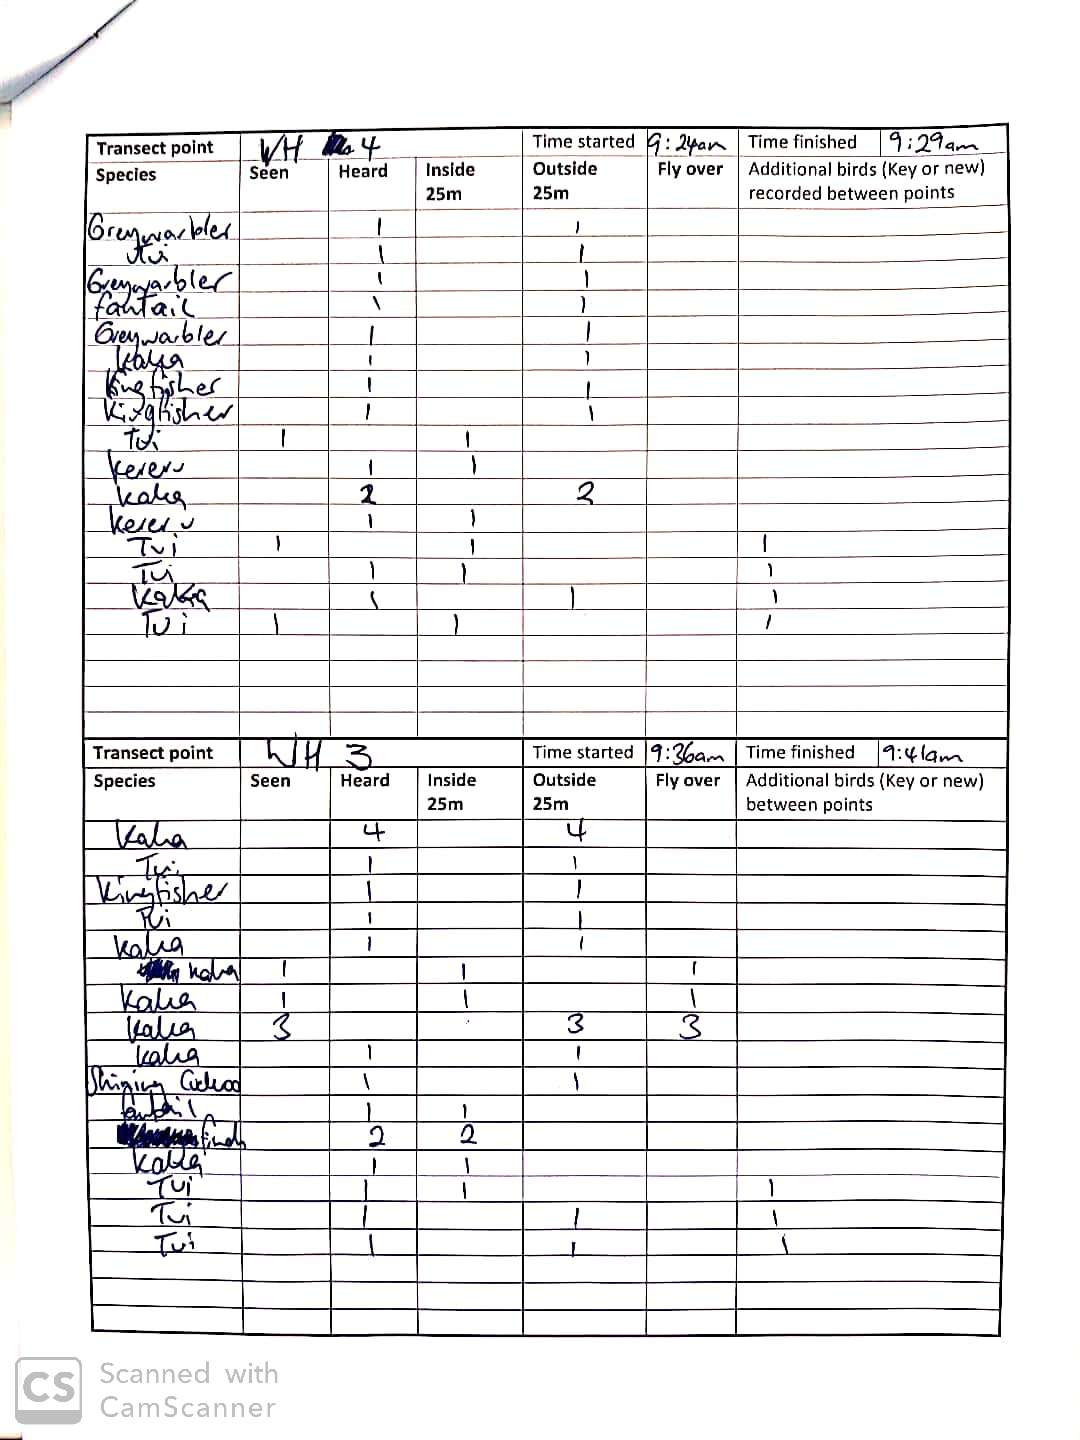 Transect point WH 4 Time started 9:24am Time finished 9:29am
Species Seen Heard Inside 25m Outside 25m Fly over Additional birds (Key or new) recorded between points
Greywarbler 1 1
Tui 1 1
Greywarbler 1 1
fantail 1 1
Greywarbler 1 1
kaka 1 1
Kingfisher 1 1
Kingfisher 1 1
Tui 1 1
kereru 1 1
kaka 2 2
kereru 1 1
Tui 1 1 1
Tui 1 1 1
Kaka 1 1 1
Tui 1 1 1
Transect point WH 3 Time started 9:36am Time finished 9:41am
Species Seen Heard Inside 25m Outside 25m Fly over Additional birds (Key or new) between points
Kaka 4 4
Tui 1 1
Kingfisher 1 1
Tui 1 1
kaka 1 1
kaka 1 1 1
Kaka 1 1 1
Kaka 3 3 3
kaka 1 1
Shining Cuckoo 1 1
fantail 1 1
finch 2 2
Kaka 1 1
Tui 1 1 1
Tui 1 1 1
Tui 1 1 1
CS Scanned with
CamScanner